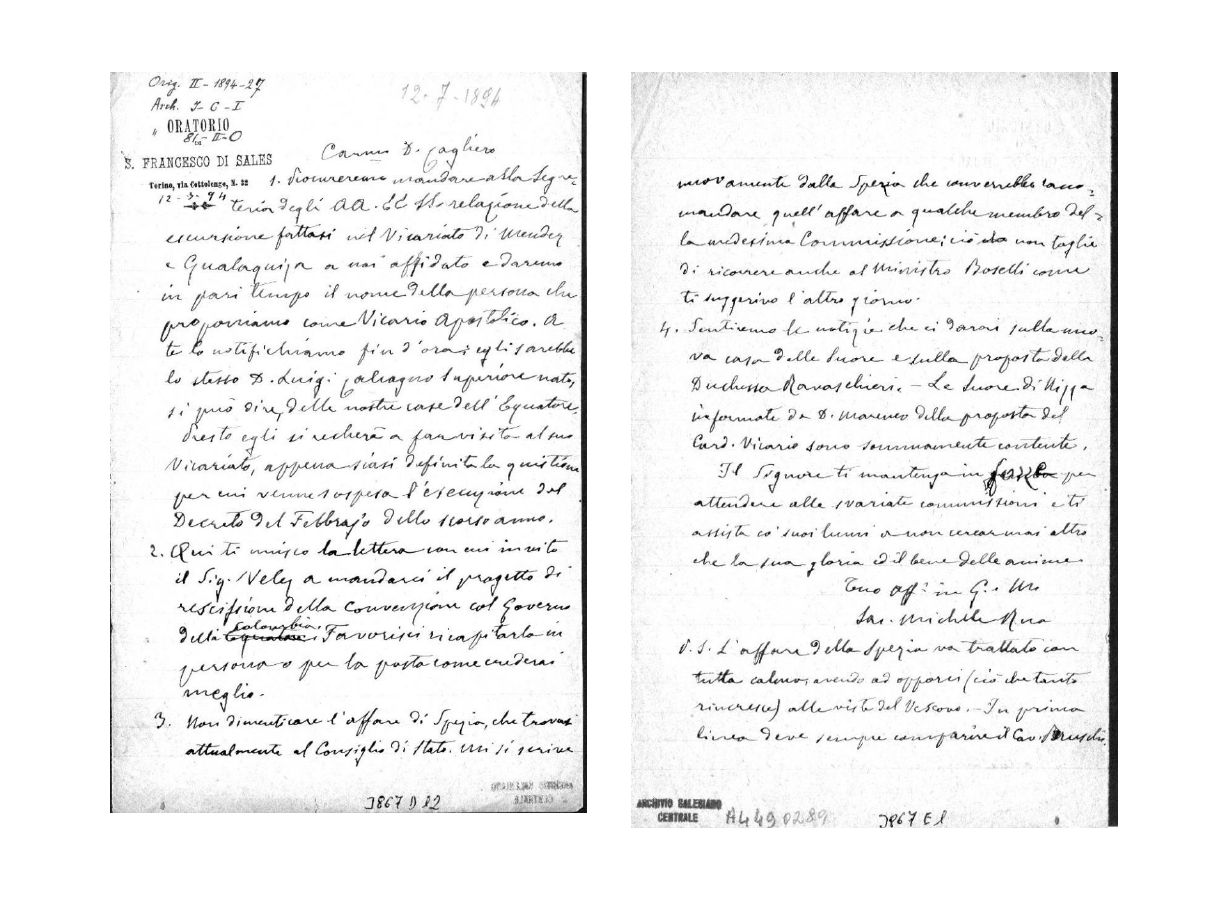 Orig. II - 1894-27
Arch. I- C - I
12-7-1894
ORATORIO
S. FRANCESCO DI SALES
Torino, via Cottolengo, N. 32
Carmo D. Cagliero
1. Procureremo mandare alla Segre-
teria degli AA. EE. SS. relazione della
escursione fattasi nel Vicariato di Mendez
e Gualaquiza a noi affidato e daremo
in pari tempo il nome della persona che
proponiamo come Vicario Apostolico. A
te lo notifichiamo fin d'ora; egli sarebbe
lo stesso D. Luigi Calcagno Superiore nato,
si può dire, delle nostre case dell'Equatore.
Presto egli si recherà a far visita al suo
Vicariato, appena siasi definita la quistione
per cui venne sospesa l'esecuzione del
Decreto del Febbrajo dello scorso anno.
2. Qui ti unisco la lettera con cui invito
il Sig. Velez a mandarci il progetto di
rescissione della Convenzione col Governo
della Colombia. Favorisci ricapitarla in
persona o per la posta come crederai
meglio.
3. Non dimenticare l'affare di Spezia, che trovasi
attualmente al Consiglio di Stato. Mi si scrive
nuovamente dalla Spezia che converrebbe racco-
mandare quell'affare a qualche membro del-
la medesima Commissione; ciò non toglie
di ricorrere anche al Ministro Boselli come
ti suggerivo l'altro giorno.
4. Sentiremo le notizie che ci darai sulla nuo-
va casa delle Suore e sulla proposta della
Duchessa Ravaschieri. - Le Suore di Nizza
informate da D. Marenco della proposta del
Card. Vicario sono sommamente contente.
Il Signore ti mantenga in forze per
attendere alle svariate commissioni e ti
assista co' suoi lumi a non cercar mai altro
che la sua gloria ed il bene delle anime
Tuo aff. in G. e M.
Sac. Michele Rua
P. S. L'affare della Spezia va trattato con
tutta calma, avendo ad opporci (ciò che tanto
rincresce) alle viste del Vescovo. - In prima
linea deve sempre comparire il Cav. Bruschi.
3867 D 12
ARCHIVIO SALESIANO
CENTRALE
A4490289
3867 E1